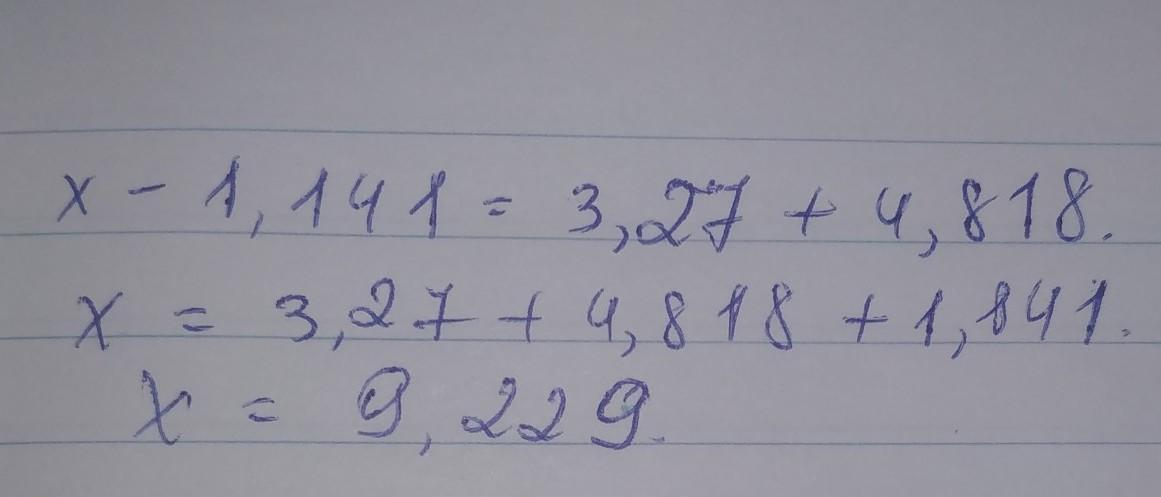 x - 1,141 = 3,27 + 4,818.
x = 3,27 + 4,818 + 1,141.
x = 9,229.